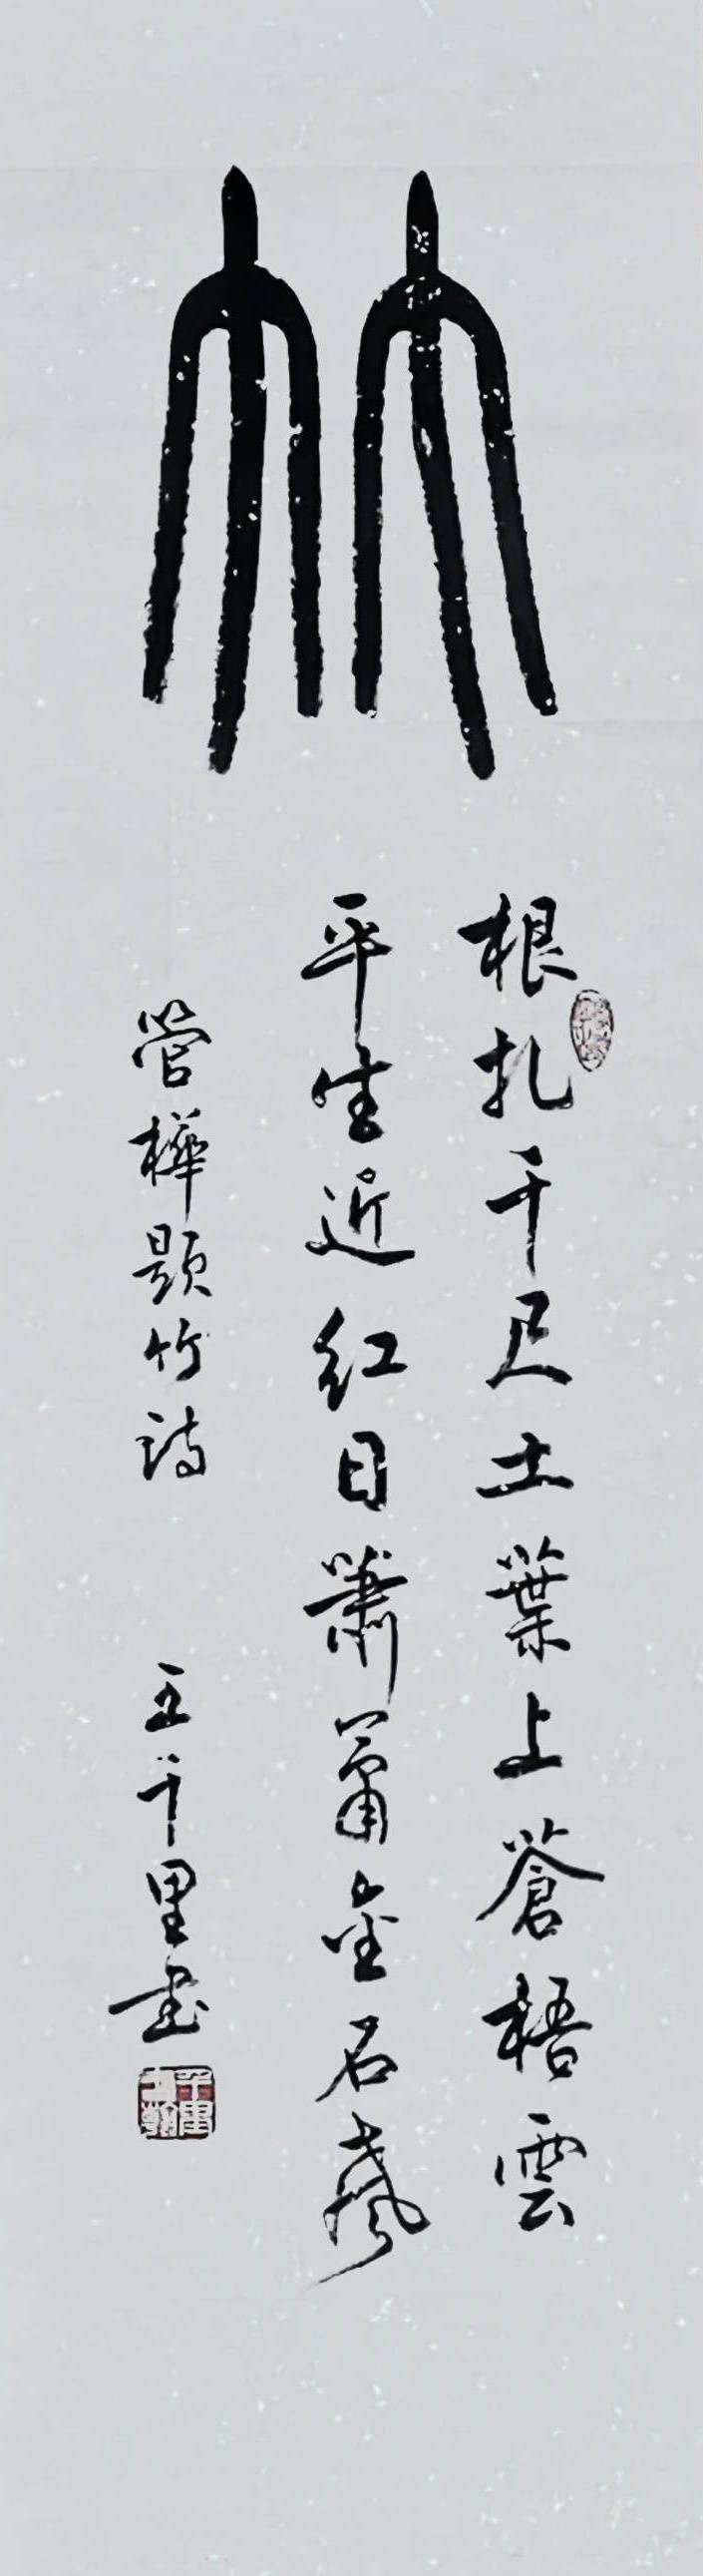 竹
根扎千尺土葉上蒼梧雲
平生近红日蕭蕭金石聲
管樺題竹詩 王千里書